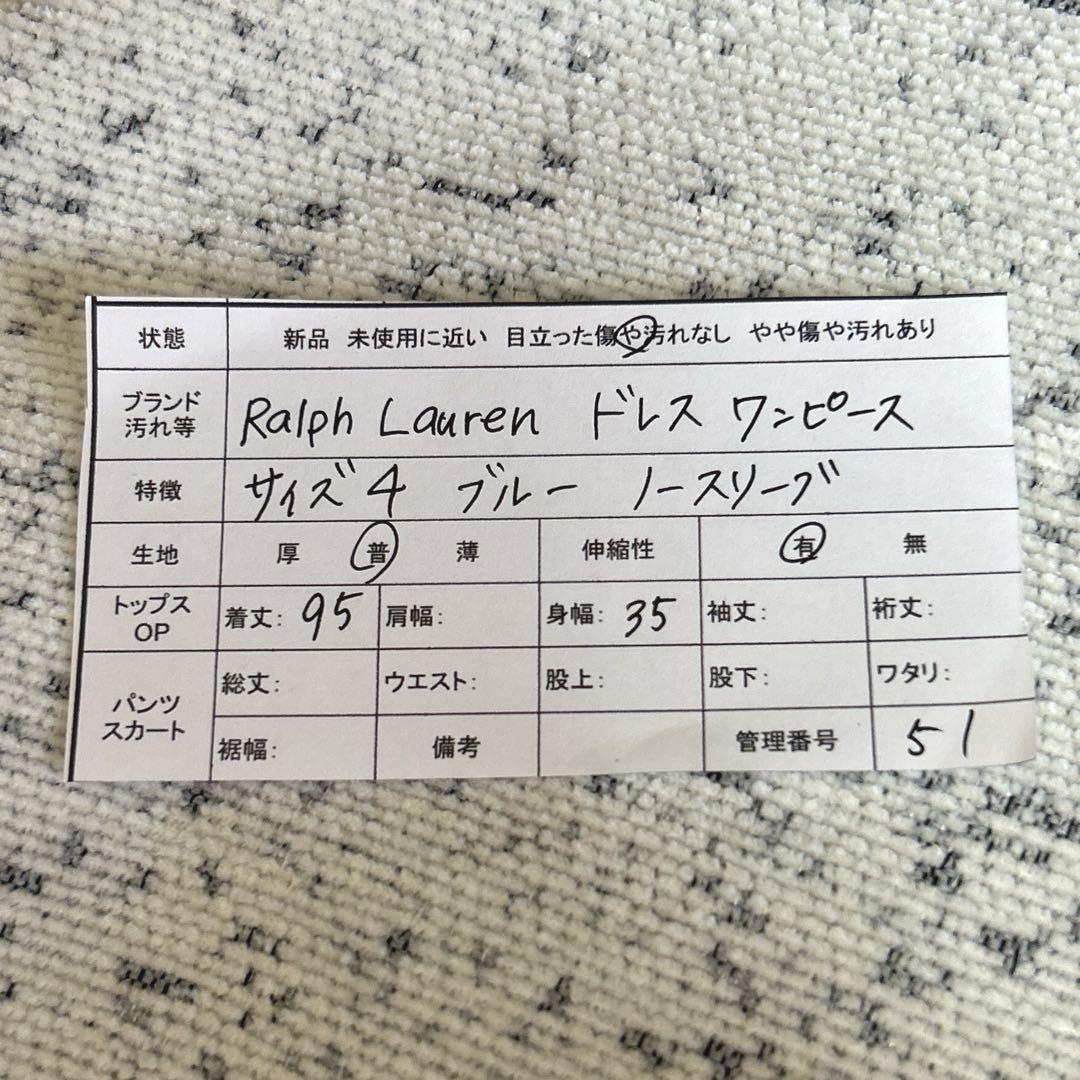 状態 新品 未使用に近い 目立った傷や汚れなし やや傷や汚れあり
ブランド
汚れ等 Ralph Lauren ドレス ワンピース
特徴 サイズ4 ブルー ノースリーブ
生地 厚 普 薄 伸縮性 有 無
トップス
OP 着丈: 95 肩幅: 身幅: 35 袖丈: 裄丈:
パンツ
スカート 総丈: ウエスト: 股上: 股下: ワタリ:
裾幅: 備考 管理番号 51